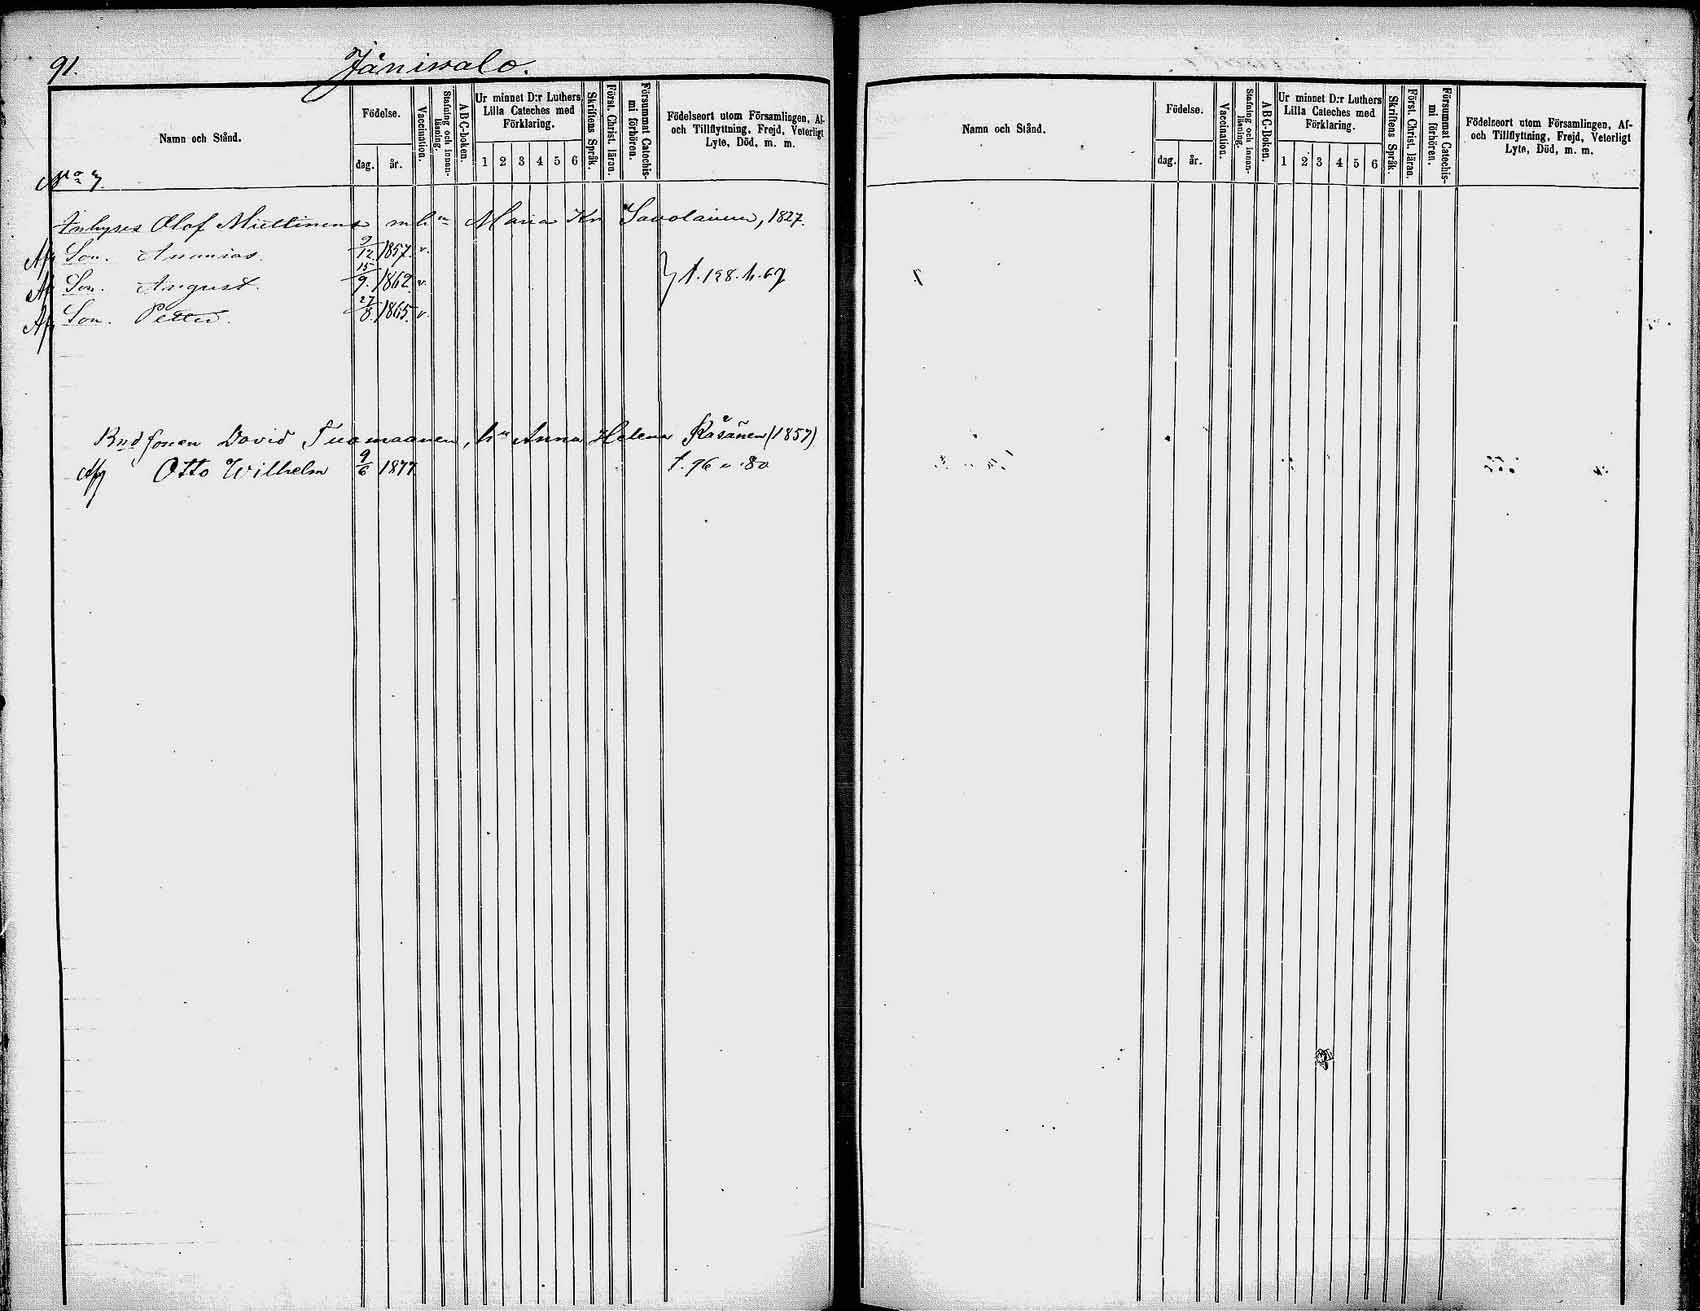 91. Jänisalo.
Namn och Stånd.
Födelse.
dag. år.
Vaccination.
Stafning och innan-läsning.
ABC-boken.
Ur minnet D:r Luthers Lilla Cateches med Förklaring.
1 2 3 4 5 6
Skriftens Språk.
Först. Christ. läran.
Försummat Catechis-mi förhören.
Födelseort utom Församlingen, Af- och Tillflyttning, Frejd, Veterligt Lyte, Död, m. m.
No 7.
Inhyses Olof Miettinens m hu Maria Kr Savolainen, 1827.
Afg Son. Ananias. 9/12 1857. v.
Af Son. August. 15/9. 1862 v. } t. 128. h. 69
Afg Son. Petter. 27/8. 1865. v.
Bndsonen David Tuomaanen, hu Anna Helena Räsänen (1857)
Afg Otto Wilhelm 9/6 1877. t. 96 80
Namn och Stånd.
Födelse.
dag. år.
Vaccination.
Stafning och innan-läsning.
ABC-Boken.
Ur minnet D:r Luthers Lilla Cateches med Förklaring.
1 2 3 4 5 6
Skriftens Språk.
Först. Christ. läran.
Försummat Catechis-mi förhören.
Födelseort utom Församlingen, Af- och Tillflyttning, Frejd, Veterligt Lyte, Död, m. m.